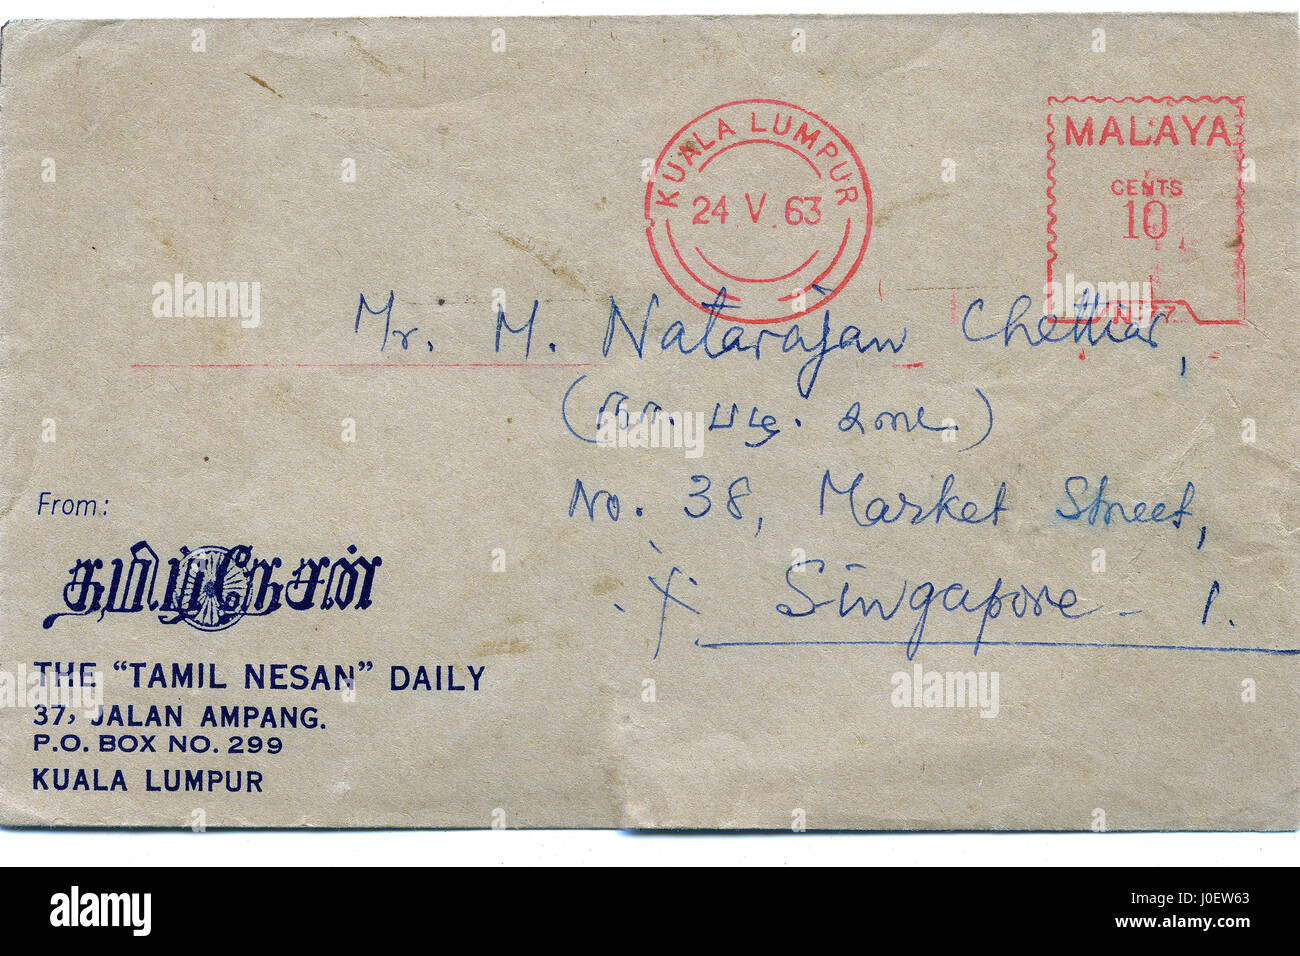 KUALA LUMPUR
24 V 63
MALAYA
CENTS
10
Mr. M. Natarajan Chettiar,
No. 38, Market Street,
Singapore - 1.
From:
தமிழ் நேசன்
THE “TAMIL NESAN” DAILY
37, JALAN AMPANG.
P.O. BOX NO. 299
KUALA LUMPUR
alamy
Image ID: J0EW63
www.alamy.com